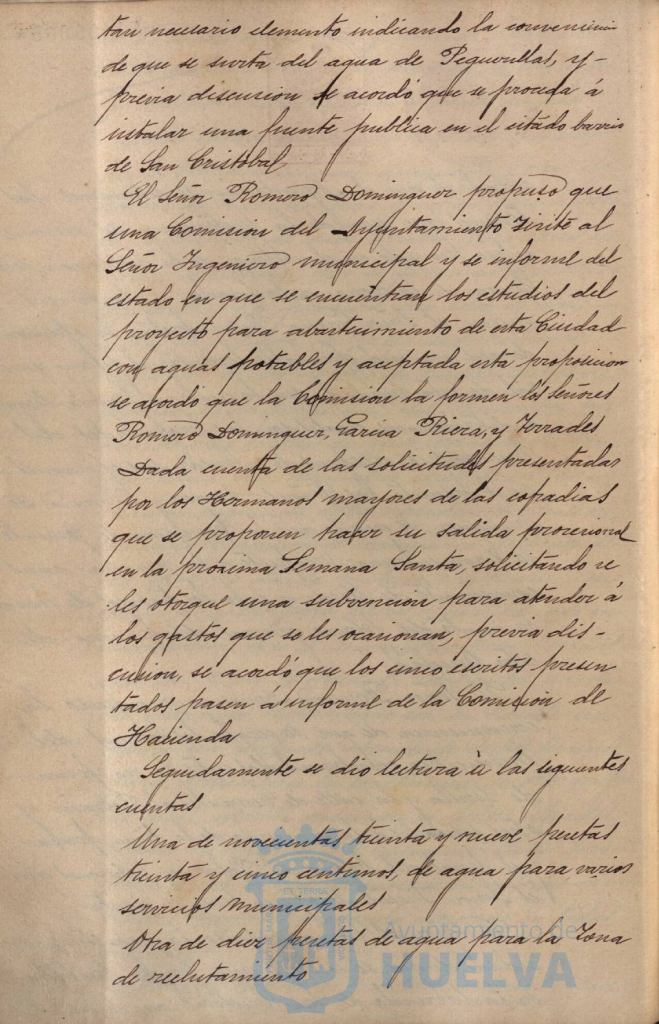 tan necesario elemento indicando la conveniencia
de que se surta del agua de Peguerillas, y
previa discusion se acordó que se proceda á
instalar una fuente publica en el citado barrio
de San Cristobal
El Señor Romero Dominguez propuso que
una Comision del Ayuntamiento visite al
Señor Ingeniero municipal y se informe del
estado en que se encuentran los estudios del
proyecto para abastecimiento de esta Ciudad
con aguas potables y aceptada esta proposicion
se acordó que la Comision la formen los Señores
Romero Dominguez, Garcia Riera, y Terrades
Dada cuenta de las solicitudes presentadas
por los Hermanos mayores de las cofradias
que se proponen hacer su salida procesional
en la proxima Semana Santa, solicitando se
les otorgue una subvencion para atender á
los gastos que se les ocasionan, previa dis-
cusion, se acordó que los cinco escritos presen
tados pasen á informe de la Comision de
Hacienda
Seguidamente se dio lectura á las siguientes
cuentas
Una de novecientas treinta y nueve pesetas
treinta y cinco centimos, de agua para varios
servicios municipales
Otra de diez pesetas de agua para la Zona
de reclutamiento
Ayuntamiento de
HUELVA